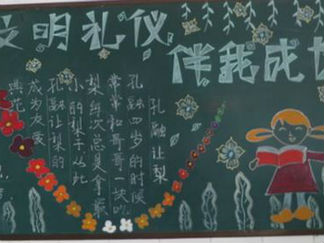 文明礼仪
伴我成长
孔融让梨
孔融四岁的时候
常常和哥哥一块
梨每次总是拿最
小的梨子从此
孔融让梨的
成为友爱
典范